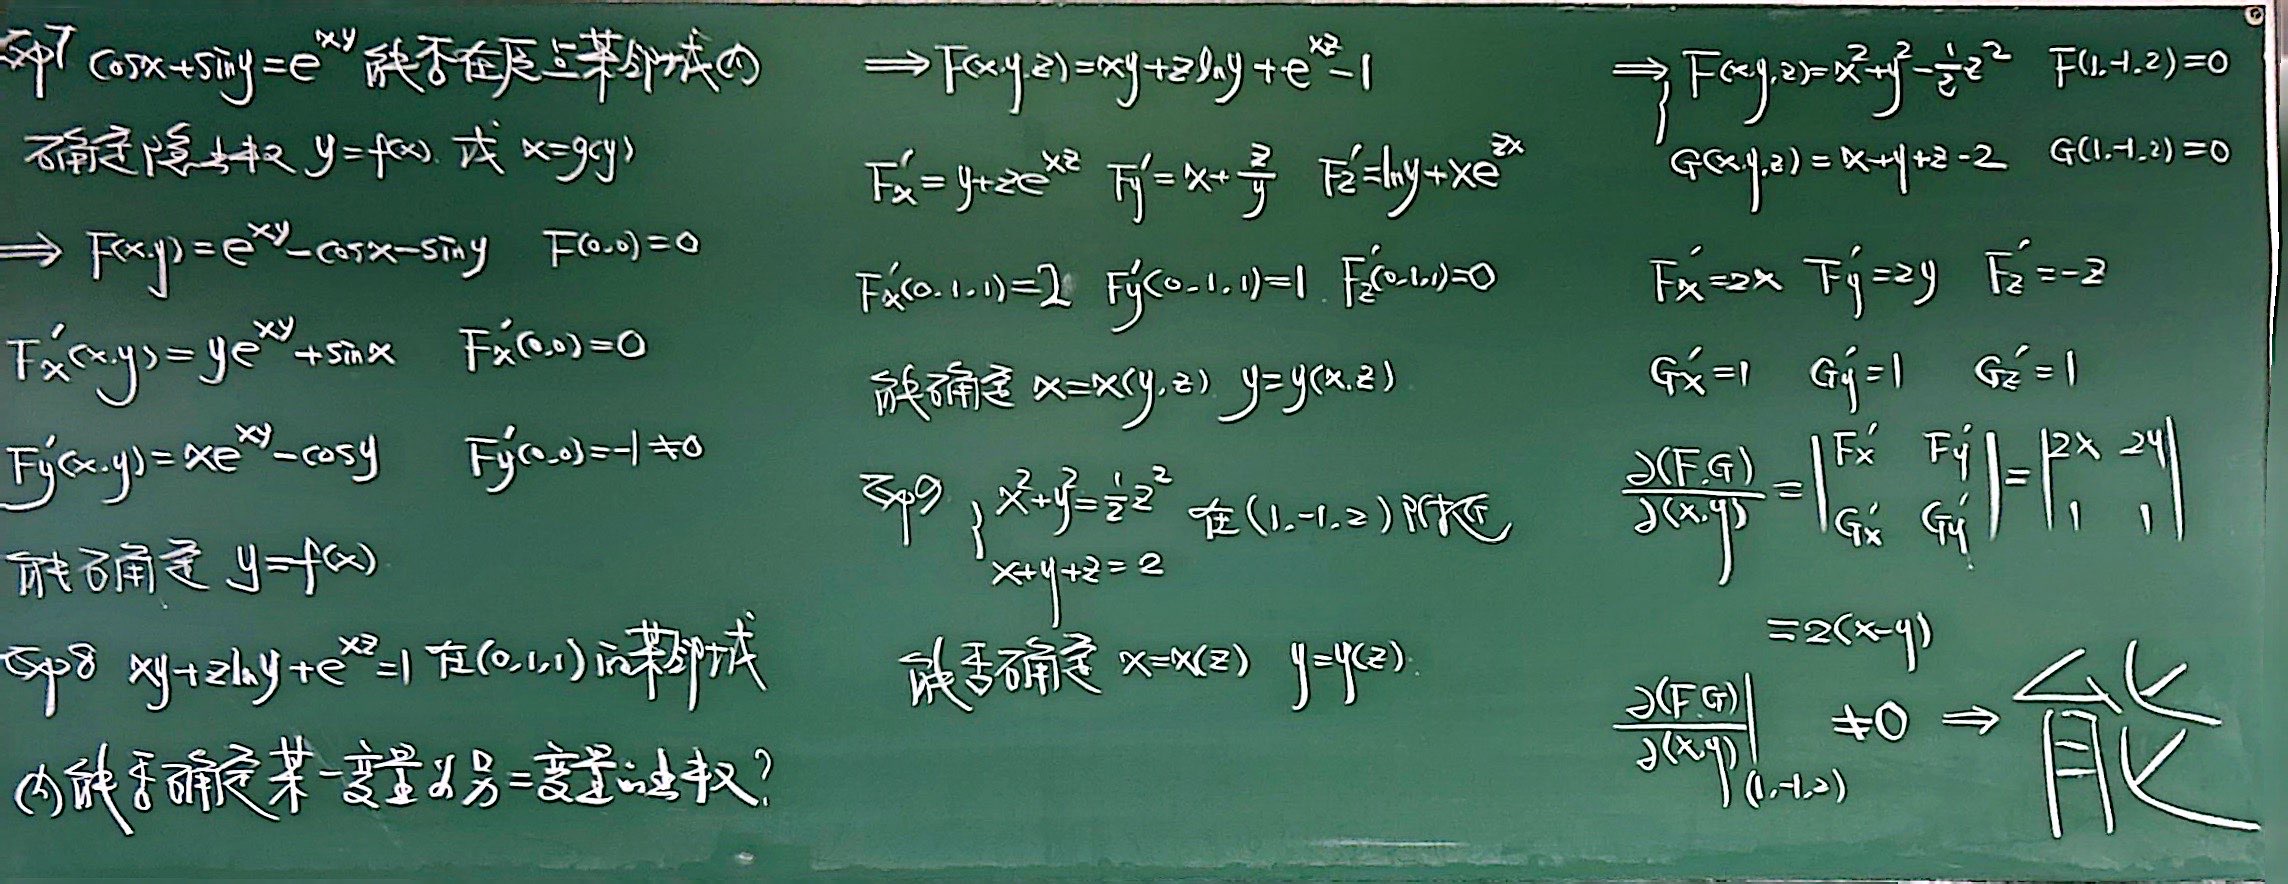 例7 cosx+siny=e^{xy} 能否在原点某邻域内
确定隐函数 y=f(x). 或 x=g(y)
⟹ F(x.y)=e^{xy}-cosx-siny F(0.0)=0
F'x(x.y)=ye^{xy}+sinx F'x(0.0)=0
F'y(x.y)=xe^{xy}-cosy F'y(0.0)=-1≠0
能否确定 y=f(x)
例8 xy+zlny+e^{xz}=1 在(0,1,1)的某邻域
内能否确定某一变量为另二变量的函数?
⟹ F(x.y.z)=xy+zlny+e^{xz}-1
F'x=y+ze^{xz} F'y=x+\frac{z}{y} F'z=lny+xe^{zx}
F'x(0.1.1)=2 F'y(0.1.1)=1. F'z(0.1.1)=0
能确定 x=x(y,z) y=y(x.z)
例9 { x²+y²=½z² 在(1.-1.2)附近
x+y+z=2
能否确定 x=x(z) y=y(z).
⟹ { F(x.y.z)=x²+y²-½z² F(1.-1.2)=0
G(x.y.z)=x+y+z-2 G(1.-1.2)=0
F'x=2x F'y=2y F'z=-z
G'x=1 G'y=1 G'z=1
\frac{∂(F.G)}{∂(x.y)}=|F'x F'y; G'x G'y|=|2x 2y; 1 1|
=2(x-y)
\frac{∂(F.G)}{∂(x.y)}|_{(1.-1.2)} ≠0 ⟹ 能